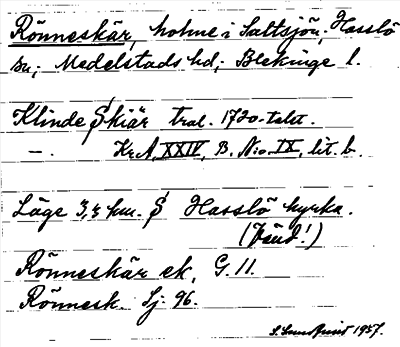 Rönneskär, holme i Saltsjön; Hasslö
sn; Medelstads hd; Blekinge l.
Klinde Skiär tral. 1720-talet.
—. Kr.A. XXIV, B. No. IX, lit. b.
Läge 3,5 km. S Hasslö kyrka.
(Vänd!)
Rönneskär ek. G. 11.
Rönnesk. Sj. 96.
1957.